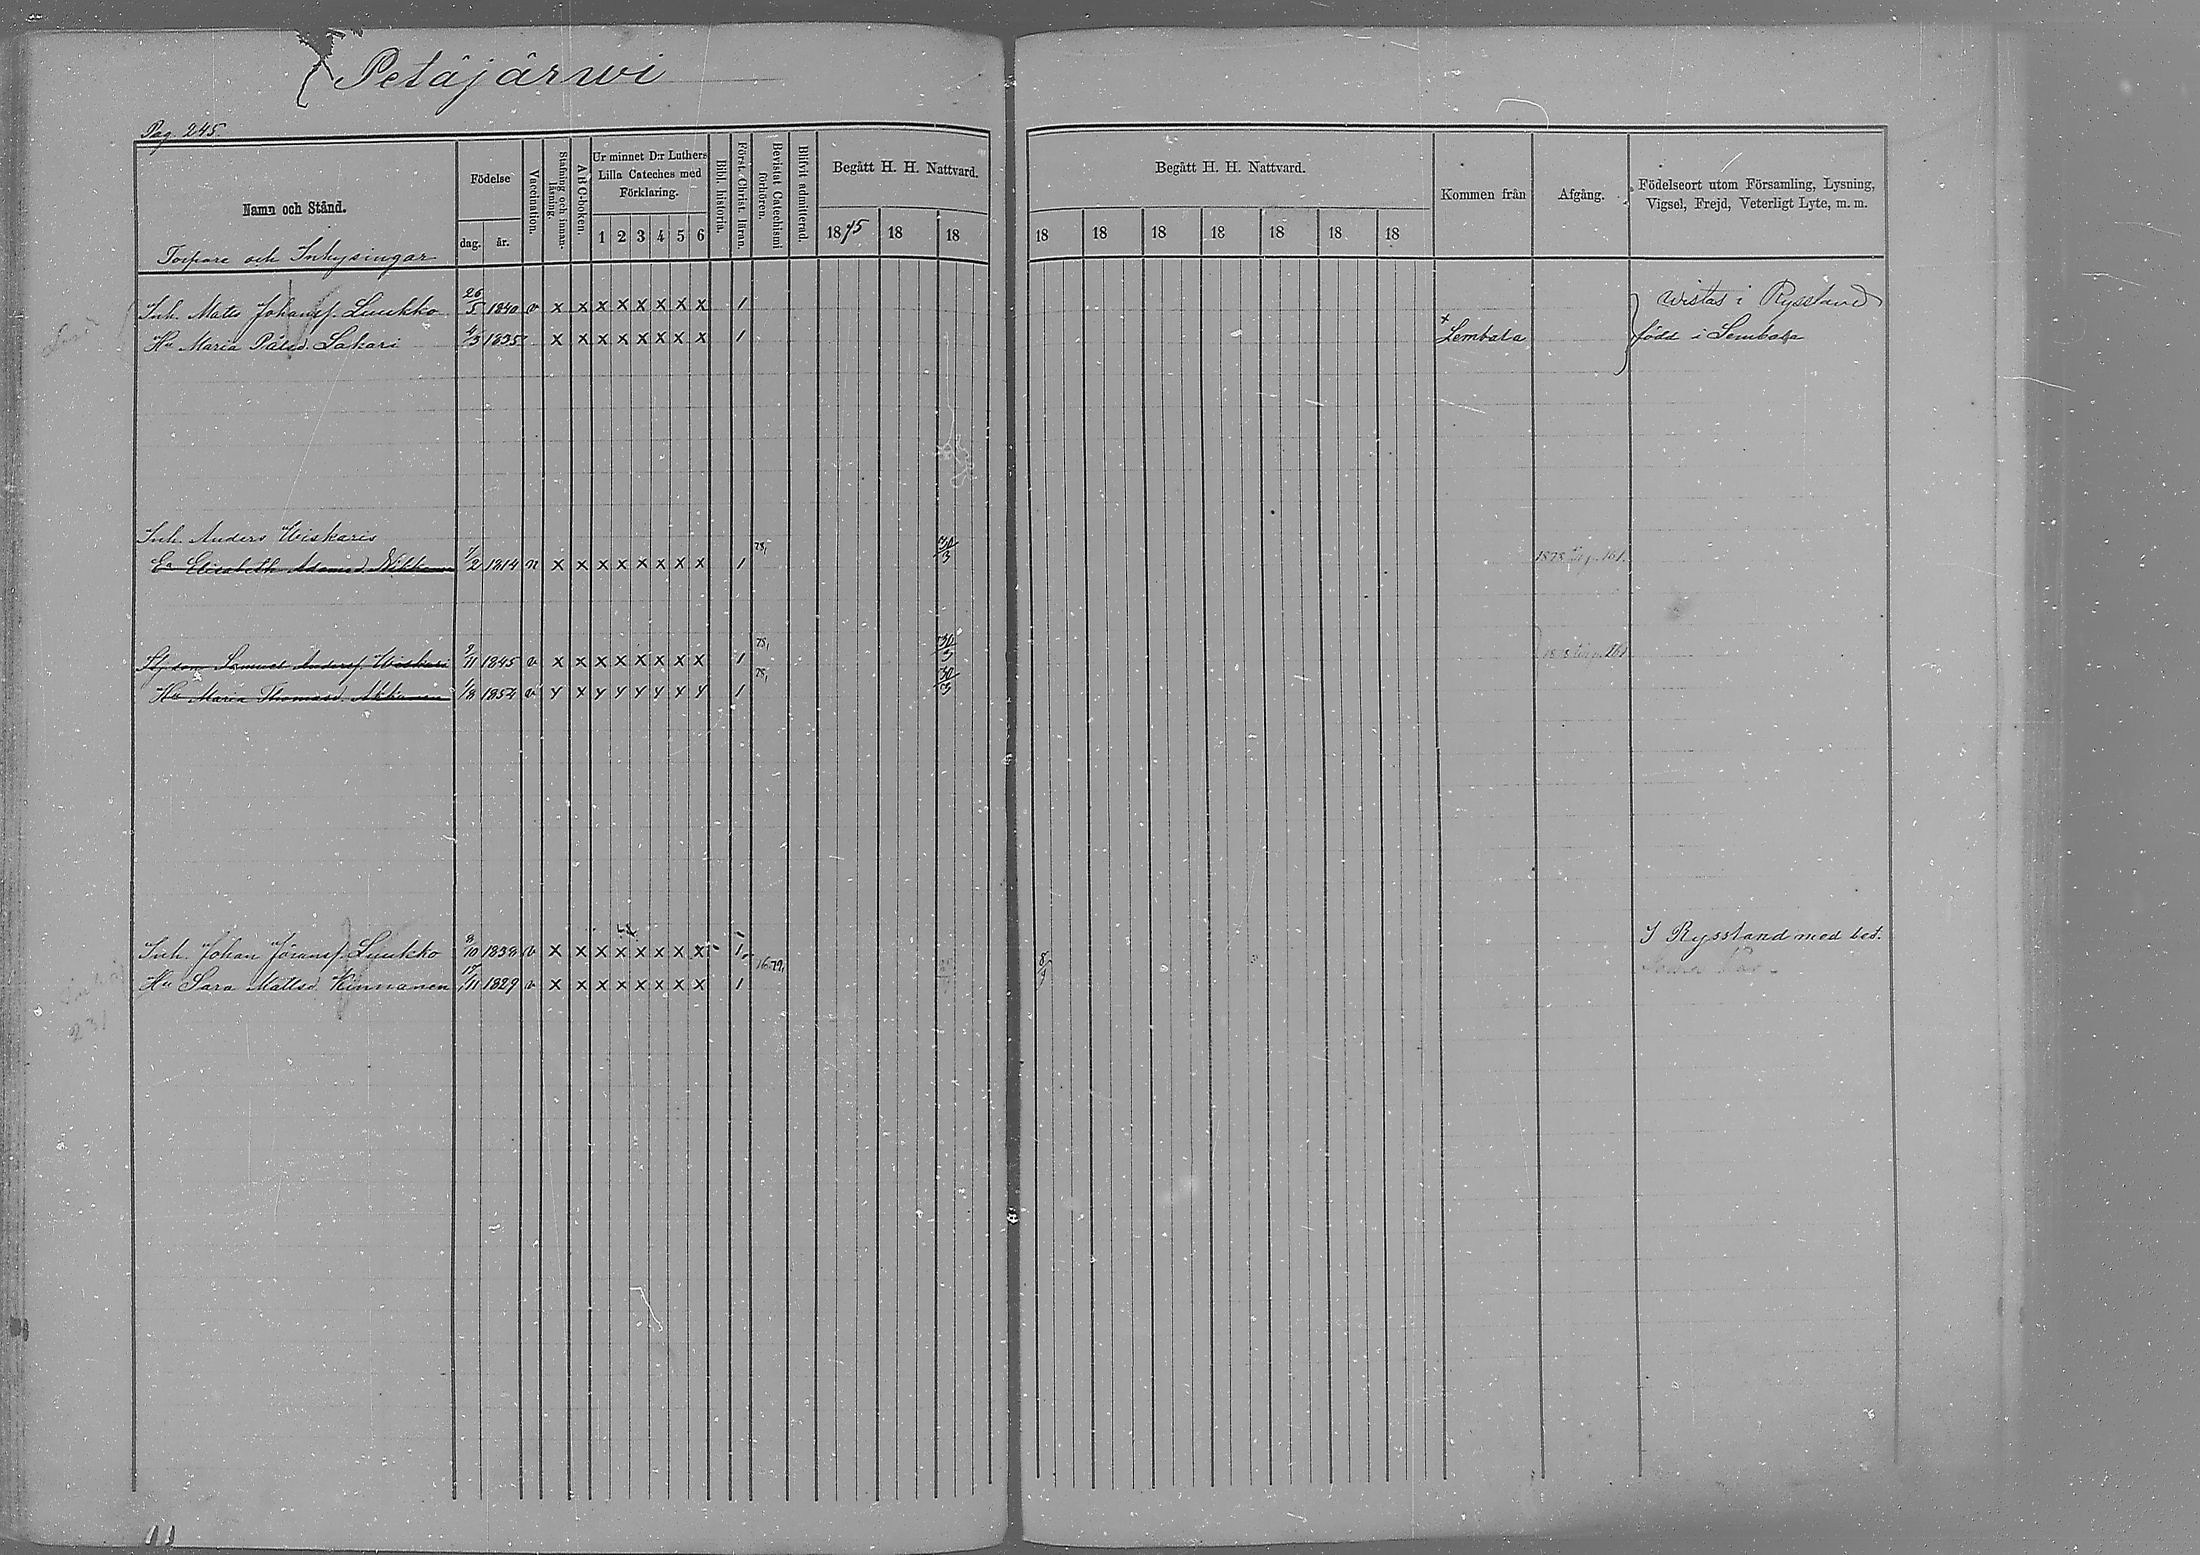 Petäjärwi
Pag. 245.
Namn och Stånd.
Födelse
dag. år.
Vaccination.
Stafning och innanläsning.
A B C-boken.
Ur minnet D:r Luthers Lilla Cateches med Förklaring.
1 2 3 4 5 6
Bibl. historia.
Först. Christ. läran.
Bevistat Catechismi förhören.
Blifvit admitterad.
Begått H. H. Nattvard.
1875 18 18
Begått H. H. Nattvard.
18 18 18 18 18 18 18
Kommen från
Afgång.
Födelseort utom Församling, Lysning, Vigsel, Frejd, Veterligt Lyte, m. m.
Torpare och Inhysingar
Inh. Matts Johanss. Luukko 26/5 1840 v x x x x x x x x 1 wistas i Ryssland
Hu Maria Pålsd. Sakari 4/3 1835 x x x x x x x x 1 Lembala född i Lembala
Inh. Anders Wiskaris
Ea Elisabeth Adamsd. 7/2 1814 n x x x x x x x x 1 75, 30/3 1878
Samuel Anderss. Wiskari 9/11 1845 v x x x x x x x x 1 75, 30/3
Hu Maria Thomasd. 1/8 1852 v 1 75, 30/3
Inh. Johan Göranss. Luukko 8/10 1838 v x x x x x x x x 1 I Ryssland med bet.
Hu Sara Mattsd. Kinnanen 17/11 1829 v x x x x x x x x 1 76.79, 8/9
231